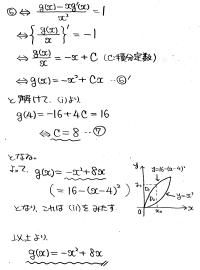 ⑥ ⇔ (g(x) - xg'(x))/x² = 1
⇔ {g(x)/x}' = -1
⇔ g(x)/x = -x + C (C:積分定数)
⇔ g(x) = -x² + Cx … ⑥'
と解けて、(ii)より、
g(4) = -16 + 4C = 16
⇔ C = 8 … ⑦
となる。
よって、g(x) = -x² + 8x
(= 16 - (x-4)²)
となり、これは(ii)をみたす。
y
y=16-(x-4)²
y=x²
x
以上より、
g(x) = -x² + 8x